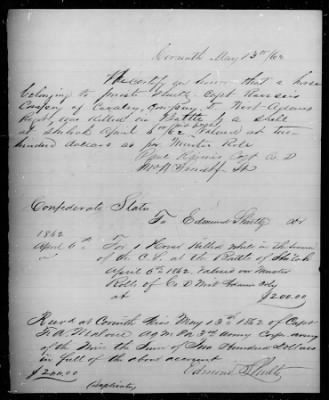 Corinth May 13th /62
We certify on honor that a horse
belonging to private Shultz Capt
Company of Cavalry, Company D. Wirt Adams
Regt was killed in Battle by a shell
at Shiloh April 6th /62 Valued at two
hundred dollars as per Muster Role
Capt Co D
Lt
Confederate States
To Edmund Shultz Dr
1862
April 6th To 1 Horse Killed while in the
of the C.S. at the Battle of Shiloh
April 6th 1862. Valued on Muster
Rolls of Co D Wirt Adams Cavy
at $200.00
Recd at Corinth Miss May 13th 1862 of Capt
A.Q.M. for 2nd Army Corps Army
of the Miss the Sum of Two Hundred Dollars
in full of the above account
$200.00 Edmund Shultz
(Duplicate)